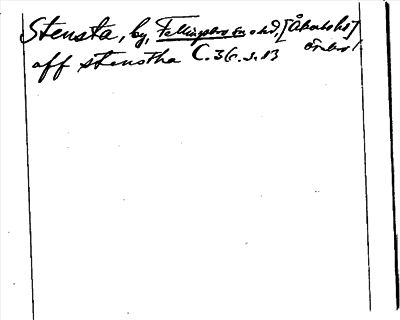 Stensta, by, Fellingsbro sn o hd, [Åkerbo hd]
Örebro l
off stenstha C. 36. s. 13